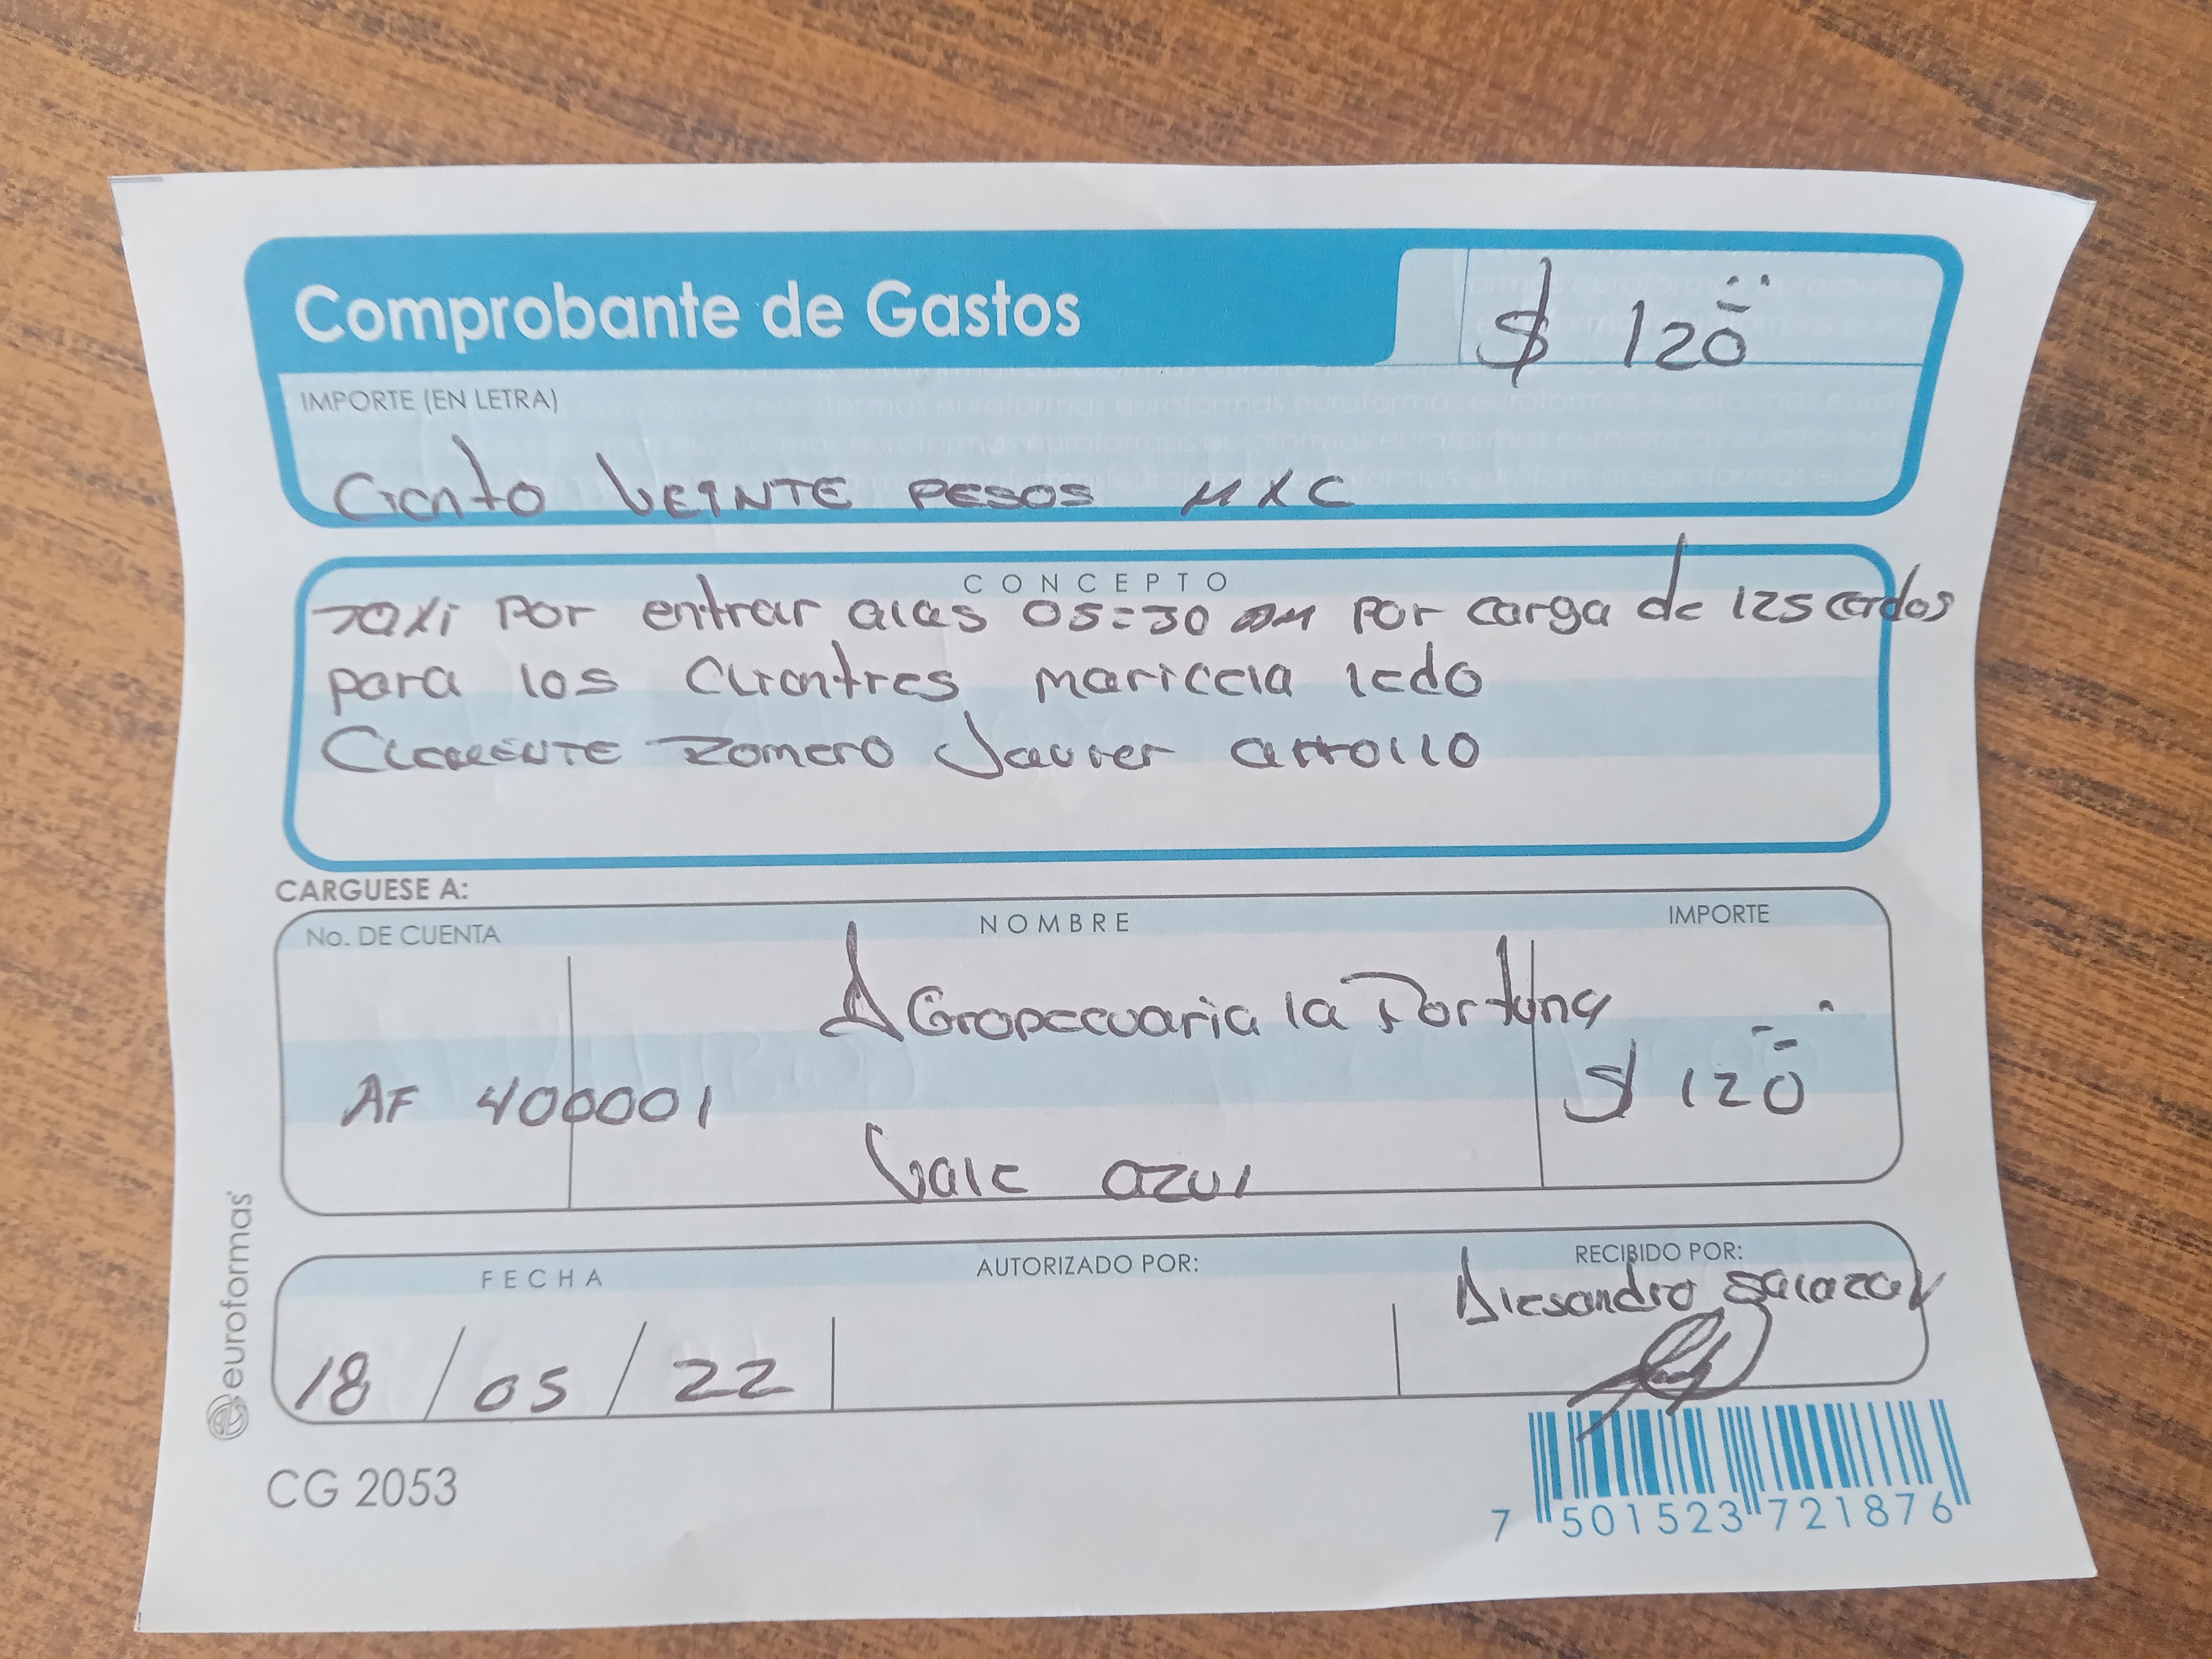 Comprobante de Gastos
$ 120
IMPORTE (EN LETRA)
Ciento VEINTE PESOS MXC
CONCEPTO
Taxi Por entrar alas 05:30 am Por carga de 125 cerdos
para los Clientres maricela ledo
Clemente Romero Javier arrollo
CARGUESE A:
No. DE CUENTA
NOMBRE
IMPORTE
AGropecuaria la Fortuna
AF 400001
$ 120
Vale azul
FECHA
AUTORIZADO POR:
RECIBIDO POR:
Alesandro Salazar
18 / 05 / 22
euroformas
CG 2053
7 501523 721876